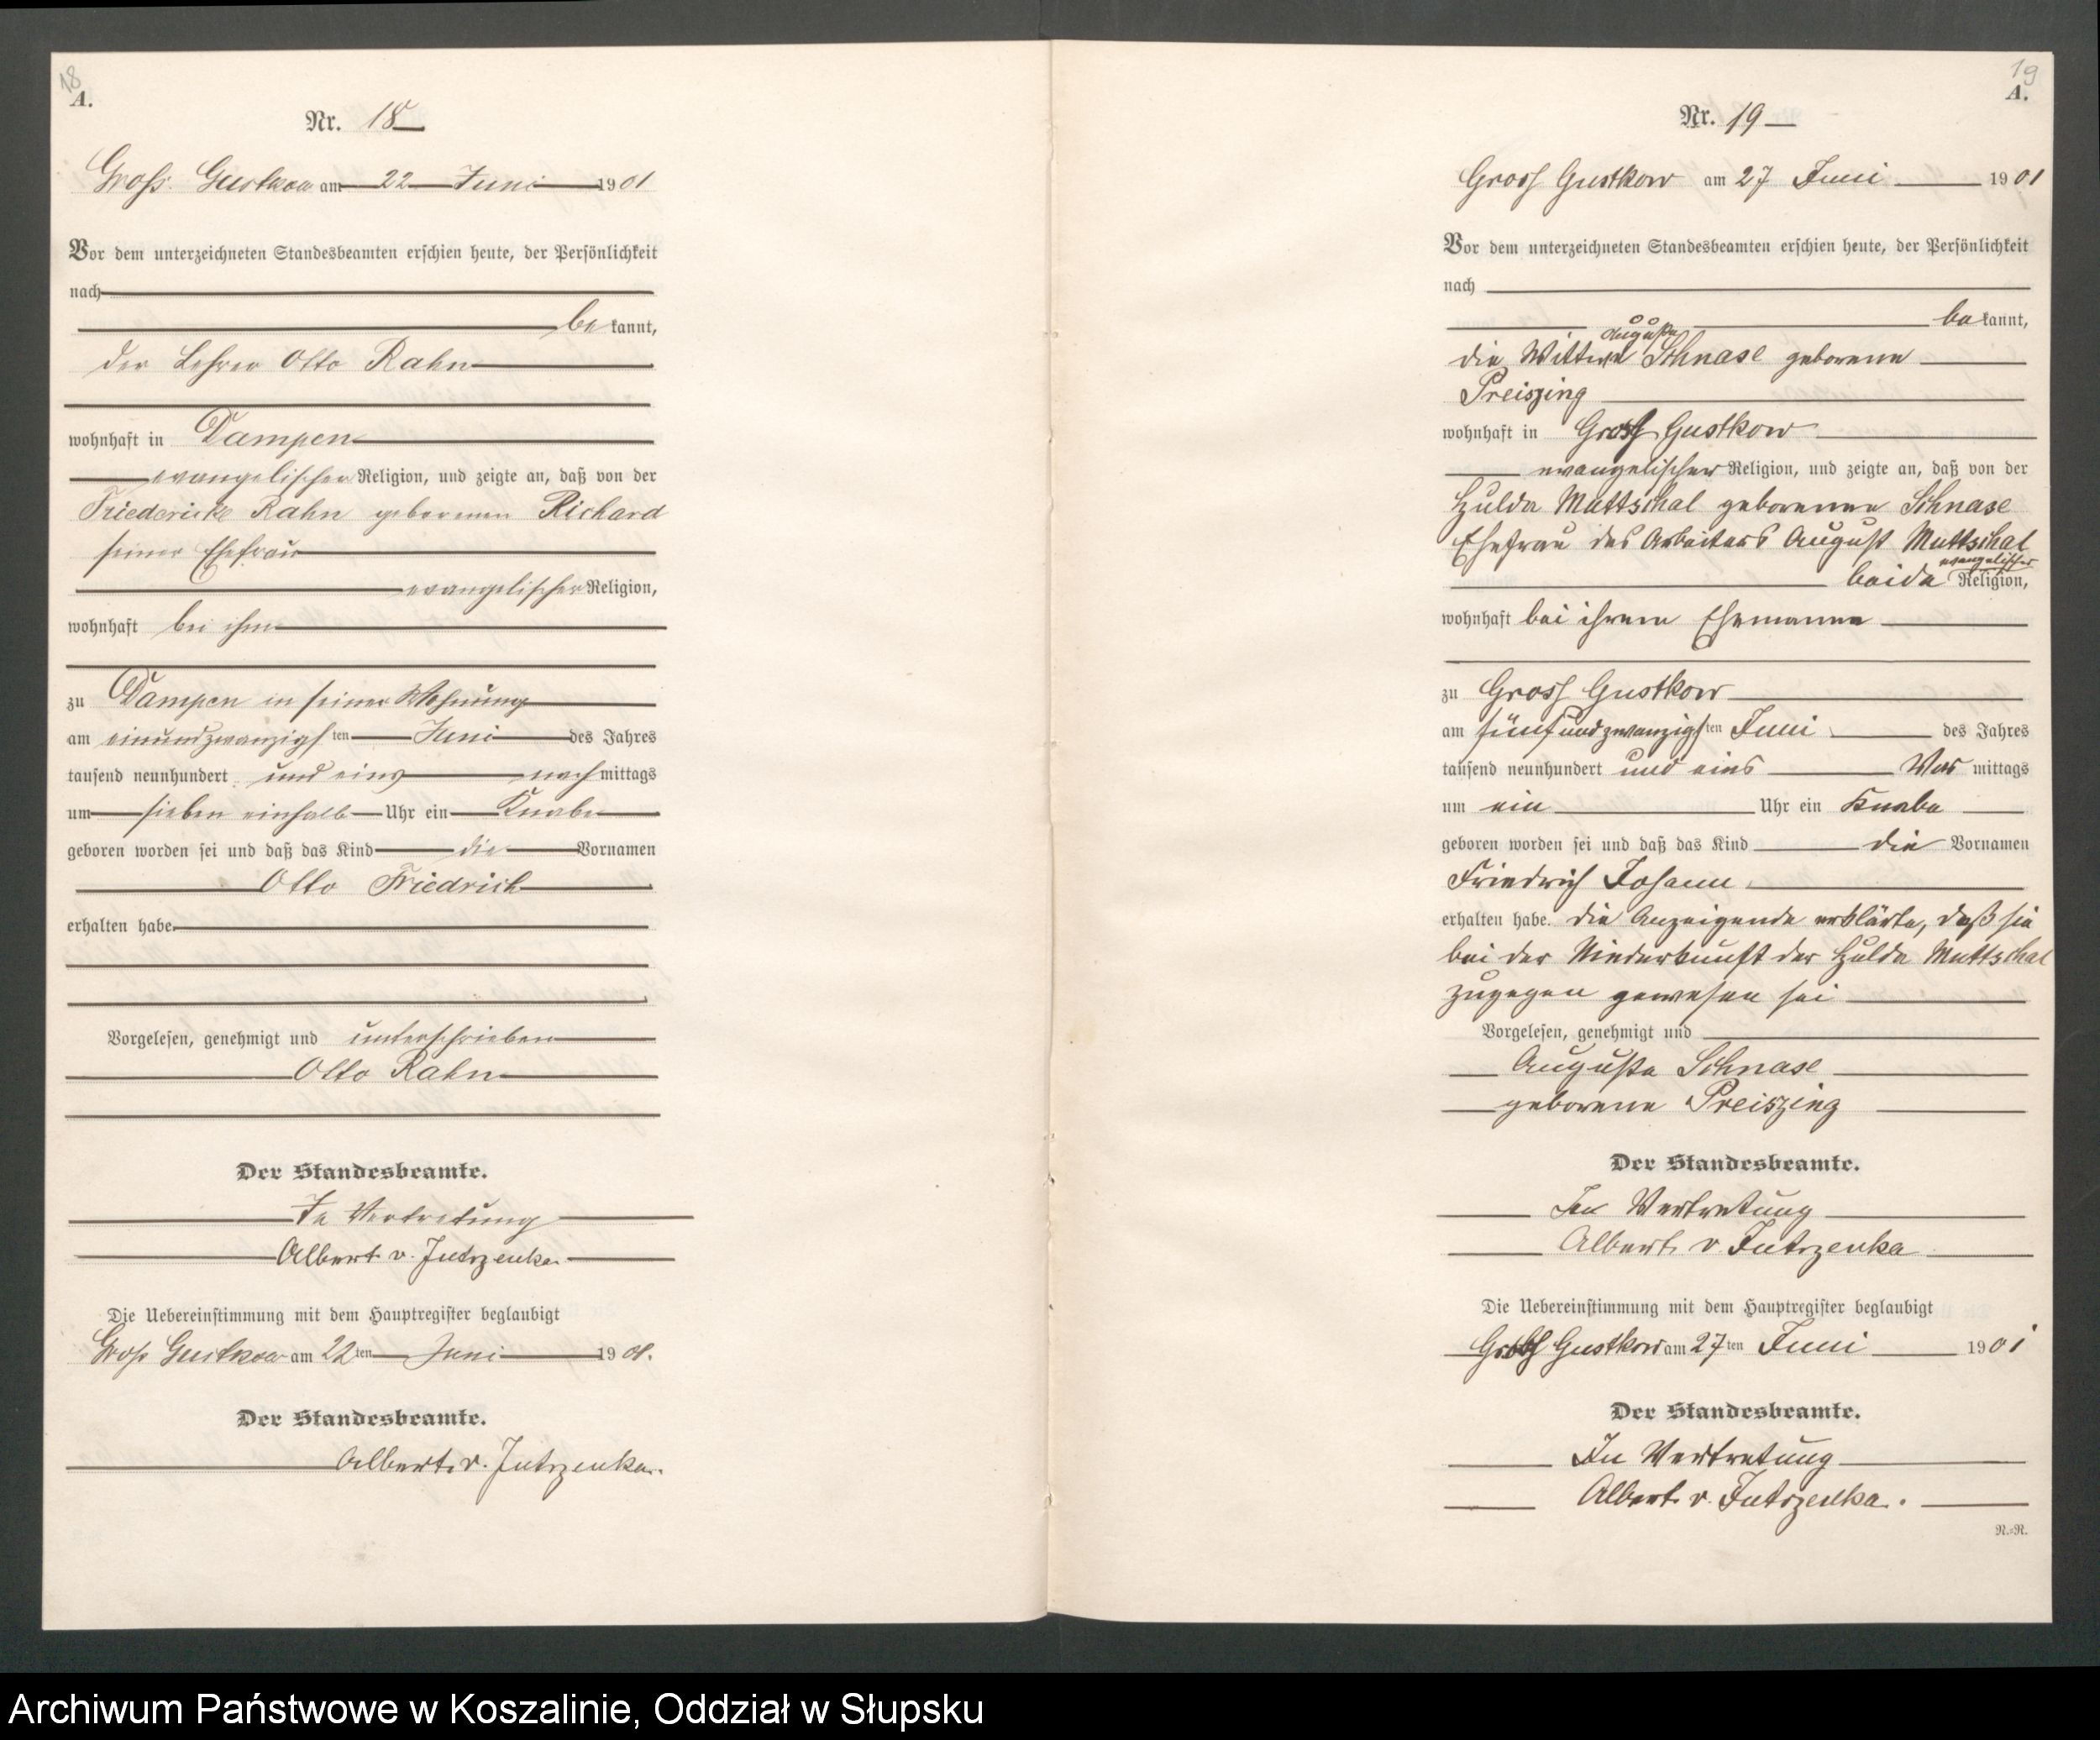 18
A.
Nr. 18
Gross Gustkow am 22 Juni 1901
Vor dem unterzeichneten Standesbeamten erschien heute, der Persönlichkeit
nach
be kannt,
der Lehrer Otto Rahn
wohnhaft in Dampen
evangelischer Religion, und zeigte an, daß von der
Friedericke Rahn geborenen Richard
seiner Ehefrau
evangelischer Religion,
wohnhaft bei ihm
zu Dampen in seiner Wohnung
am einundzwanzigsten Juni des Jahres
tausend neunhundert und eins nachmittags
um sieben einhalb Uhr ein Knabe
geboren worden sei und daß das Kind die Vornamen
Otto Friedrich
erhalten habe.
Vorgelesen, genehmigt und unterschrieben
Otto Rahn
Der Standesbeamte.
In Vertretung
Albert v. Jutrzenka
Die Uebereinstimmung mit dem Hauptregister beglaubigt
Gross Gustkow am 22ten Juni 1901.
Der Standesbeamte.
Albert v. Jutrzenka.
19
A.
Nr. 19
Gross Gustkow am 27 Juni 1901
Vor dem unterzeichneten Standesbeamten erschien heute, der Persönlichkeit
nach
be kannt,
Auguste
die Wittwe Schnase geborene
Preiszing
wohnhaft in Gross Gustkow
evangelischer Religion, und zeigte an, daß von der
Hulda Muttschal geborenen Schnase
Ehefrau des Arbeiters August Muttschal
evangelischer
beide Religion,
wohnhaft bei ihrem Ehemanne
zu Gross Gustkow
am fünfundzwanzigsten Juni des Jahres
tausend neunhundert und eins Vor mittags
um ein Uhr ein Knabe
geboren worden sei und daß das Kind die Vornamen
Friedrich Johann
erhalten habe. die Anzeigende erklärte, daß sie
bei der Niederkunft der Hulda Muttschal
zugegen gewesen sei
Vorgelesen, genehmigt und
Auguste Schnase
geborene Preiszing
Der Standesbeamte.
In Vertretung
Albert v. Jutrzenka
Die Uebereinstimmung mit dem Hauptregister beglaubigt
Gross Gustkow am 27ten Juni 1901
Der Standesbeamte.
In Vertretung
Albert v. Jutrzenka.
R.=R.
Archiwum Państwowe w Koszalinie, Oddział w Słupsku